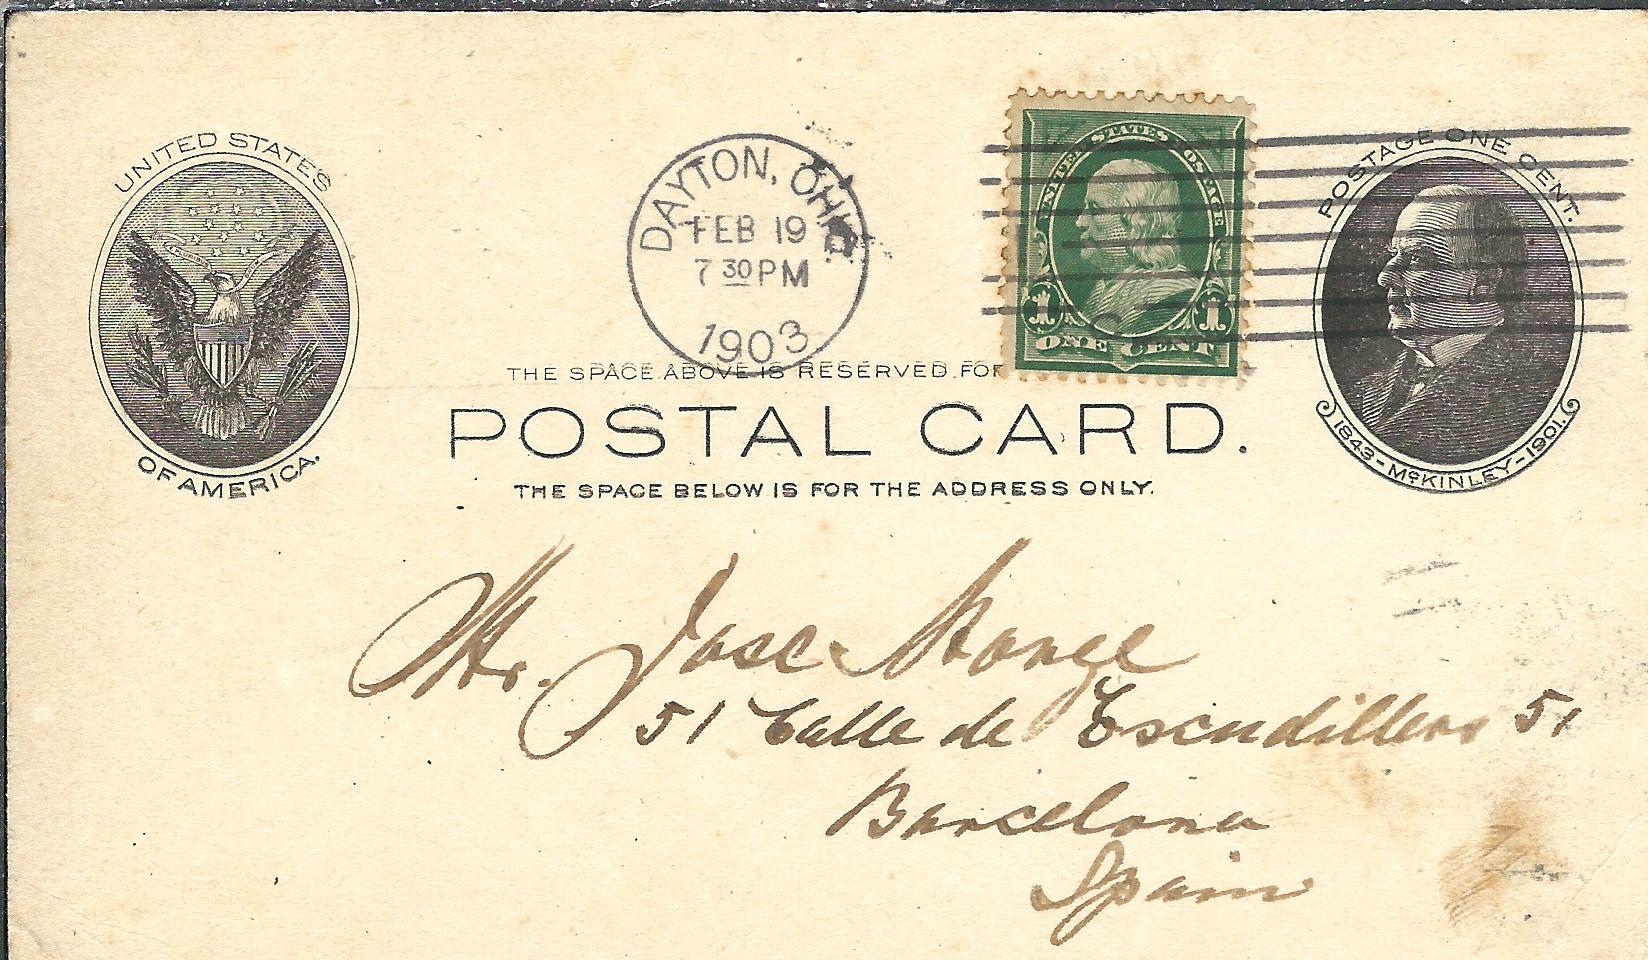 UNITED STATES
OF AMERICA.
DAYTON, OHIO.
FEB 19
7 30 PM
1903
UNITED STATES POSTAGE
1 1
ONE CENT
POSTAGE ONE CENT.
1843-McKINLEY-1901.
THE SPACE ABOVE IS RESERVED FOR
POSTAL CARD.
THE SPACE BELOW IS FOR THE ADDRESS ONLY.
Mr. Jose Monge
51 Calle de Escudillers 51
Barcelona
Spain